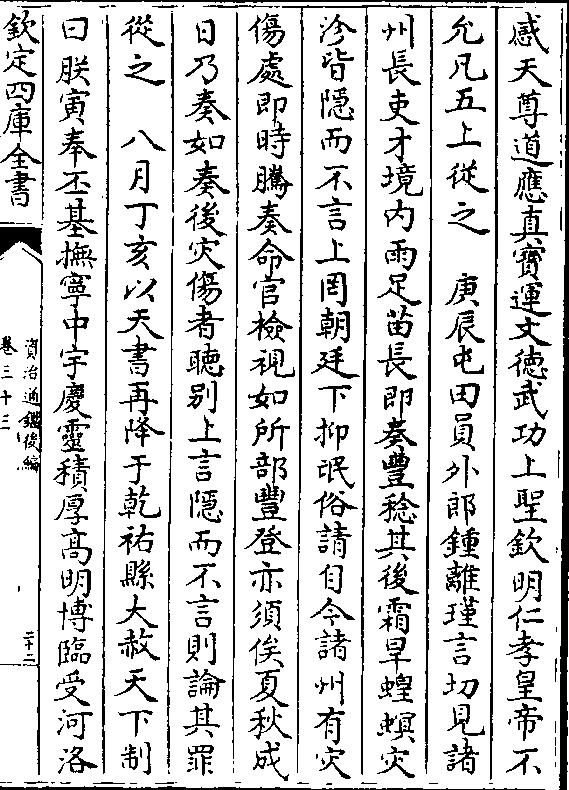 感天尊道應真寳運文徳武功上聖欽明仁孝皇帝不
允凡五上從之　庚辰屯田員外郎鍾離瑾言切見諸
州長吏才境内雨足苗長即奏豐稔其後霜旱蝗螟灾
沴皆隠而不言上罔朝廷下抑氓俗請自今諸州有灾
傷處即時騰奏命官檢視如所部豐登亦須俟夏秋成
日乃奏如奏後灾傷者聽别上言隠而不言則論其罪
從之　八月丁亥以天書再降于乾祐縣大赦天下制
曰朕寅奉丕基撫寧中宇慶靈積厚髙明博臨受河洛
欽定四庫全書
資治通鑑後編
卷三十三
二十二